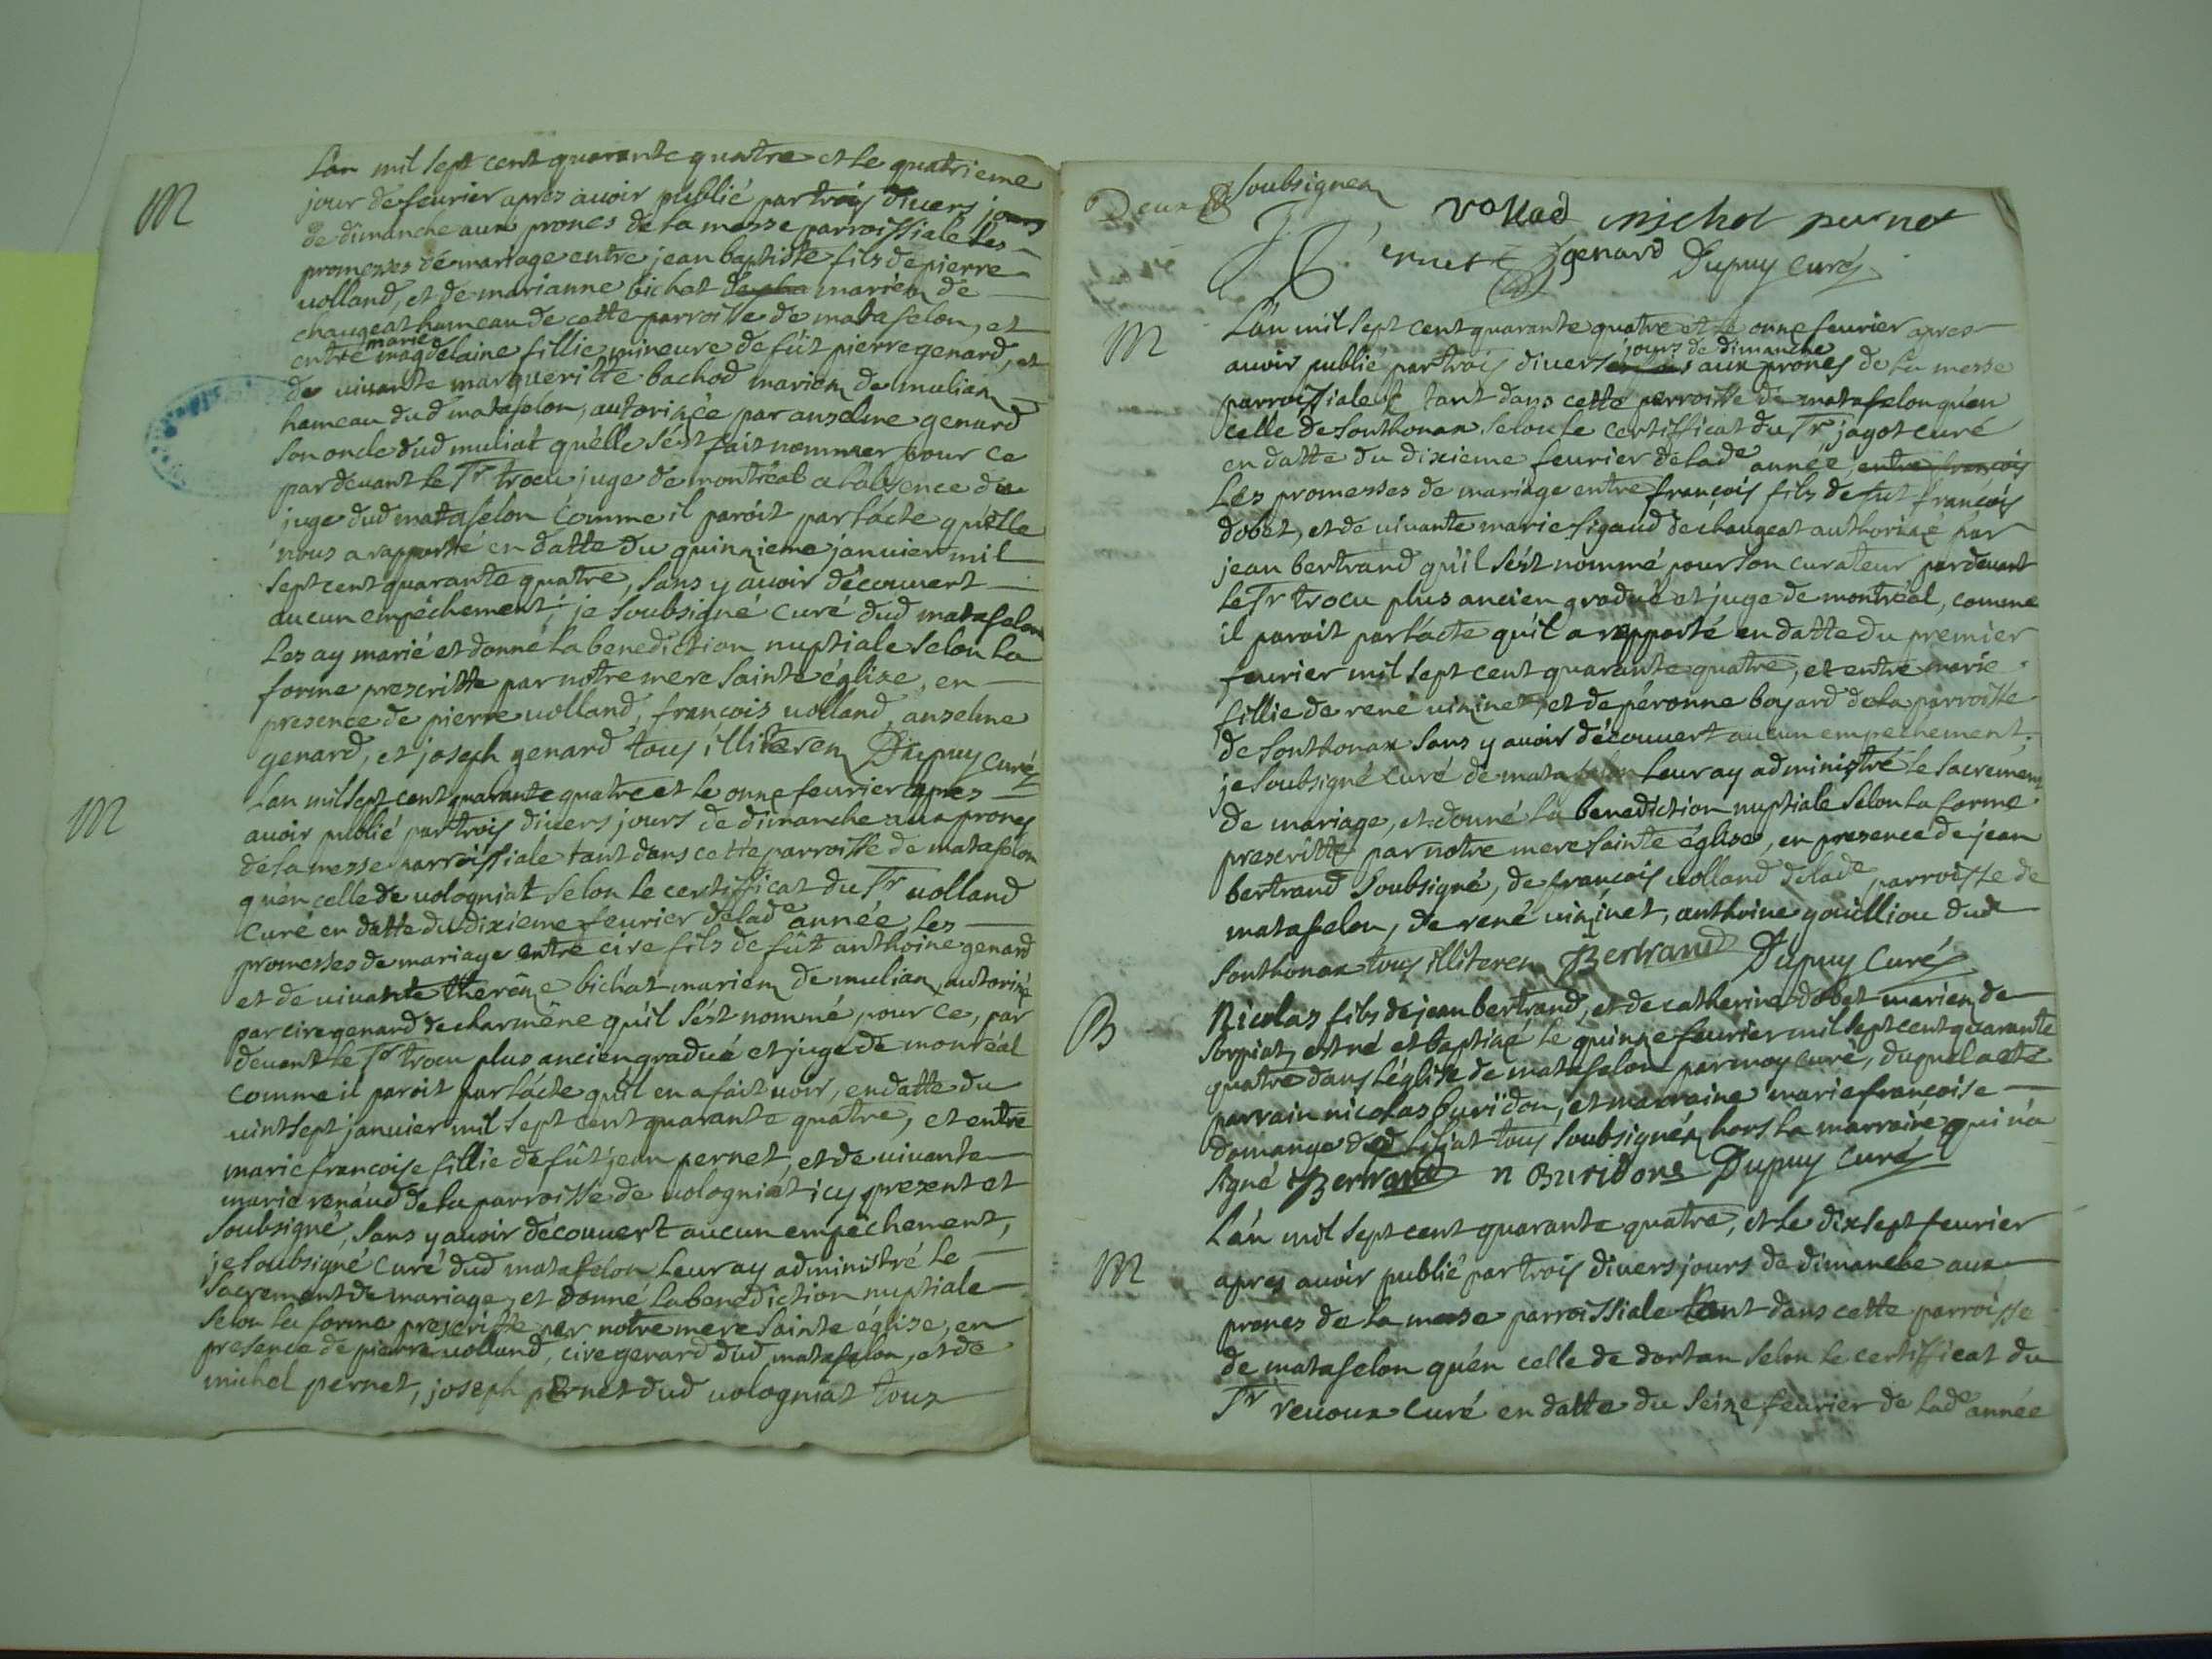 M
Lan mil sept cent quarante quatre et le quatrieme
jour de feurier apres auoir publié par trois diuers jours
de dimanche aux prones de la messe parroissiale les
promesses de mariage entre jean baptiste fils de pierre
uolland, et de marianne bichat mariez de
chaugeat hameau de cette parroisse de matafelon, et
entre marie magdelaine fillie mineure de fût pierre genard, et
de uiuante margueritte bachod mariez de muliaz
hameau dud matafelon, autorizée par anselme genard
son oncle dud muliat quélle sést fait nommer pour ce
pardeuant le Sr trocu juge de montréal a lábsence du
juge dud matafelon comme il paroit par lácte quélle
nous a rapporté en datte du quinzieme januier mil
sept cent quarante quatre, sans y auoir découuert
aucun empéchement, je soubsigné curé dud matafelon
les ay marié et donné la benediction nuptiale selon la
forme prescritte par notre mere sainte églize, en
presence de pierre uolland, francois uolland, anselme
genard, et joseph genard tous illiterez Dupuy curé
M
Lan mil sept cent quarante quatre et le onze feurier apres
auoir publié par trois diuers jours de dimanche aux prones
de la messe parroissiale tant dans cette parroisse de matafelon
quén celle de uologniat selon le certifficat du Sr uolland
curé en datte du dixieme feurier de lade année, les
promesses de mariage entre cire fils de fût anthoine genard
et de uiuante thereze bichat mariez de muliaz, autorizé
par cire genard de charmêne quíl sést nommé pour ce, par
deuant le Sr trocu plus ancien gradué et juge de montréal
comme il paroit par lácte quíl en a fait uoir, en datte du
uint sept januier mil sept cent quarante quatre, et entre
marie francoise fillie de fût jean pernet, et de uiuante
marie renaud de la parroisse de uologniat icy present et
soubsigné, sans y auoir découuert aucun empéchement,
je soubsigné curé dud matafelon leur ay administré le
sacrement de mariage, et donné la benediction nuptiale
selon la forme prescritte par notre mere sainte églize, en
presence de pierre uolland, cire genard dud matafelon, et de
michel pernet, joseph pernet dud uologniat tous
Deux soubsignez
vollad michel pernet
genard Dupuy curé
M
Lán mil sept cent quarante quatre et le onze feurier apres
auoir publié par trois diuers jours de dimanche aux prones de la messe
parroissiale tant dans cette parroisse de matafelon quén
celle de Sonthonax selon le certifficat du Sr jagot curé
en datte du dixieme feurier de lade année, entre françois
Les promesses de mariage entre françois fils de fut françois
dobet, et de uiuante marie sigaud de chaugeat authorizé par
jean bertrand quíl sést nommé pour son curateur pardeuant
le Sr trocu plus ancien gradué et juge de montréal, comme
il paroit par lácte quíl a rapporté en datte du premier
feurier mil sept cent quarante quatre, et entre marie
fillie de rené uizinet, et de péronne boyard de la parroisse
de Sonthonax sans y auoir découuert aucun empechement,
je soubsigné curé de matafelon leur ay administré le sacrement
de mariage, et donné la benediction nuptiale selon la forme
prescritte par notre mere sainte églize, en presence de jean
bertrand soubsigné, de francois uolland de lade parroisse de
matafelon, de rené uizinet, anthoine gouilliou dud
Sonthonax tous illiterez Bertrand Dupuy Curé
B
Nicolas fils de jean bertrand, et de catherine dobet mariez de
Sorpiat, est né et baptizé le quinze feurier mil sept cent quarante
quatre dans léglise de matafelon par moy curé, duquel a eté
parrain nicolas buridon, et marraine marie françoise
domange tous soubsignéz hors la marraine qui ná
signé Bertrand n Buridone Dupuy Curé
M
Lán mil sept cent quarante quatre, et le dix sept feurier
apres auoir publié par trois diuers jours de dimanche aux
prones de la messe parroissiale tant dans cette parroisse
de matafelon quén celle de dortan selon le certifficat du
Sr reuoux curé en datte du seize feurier de lade année